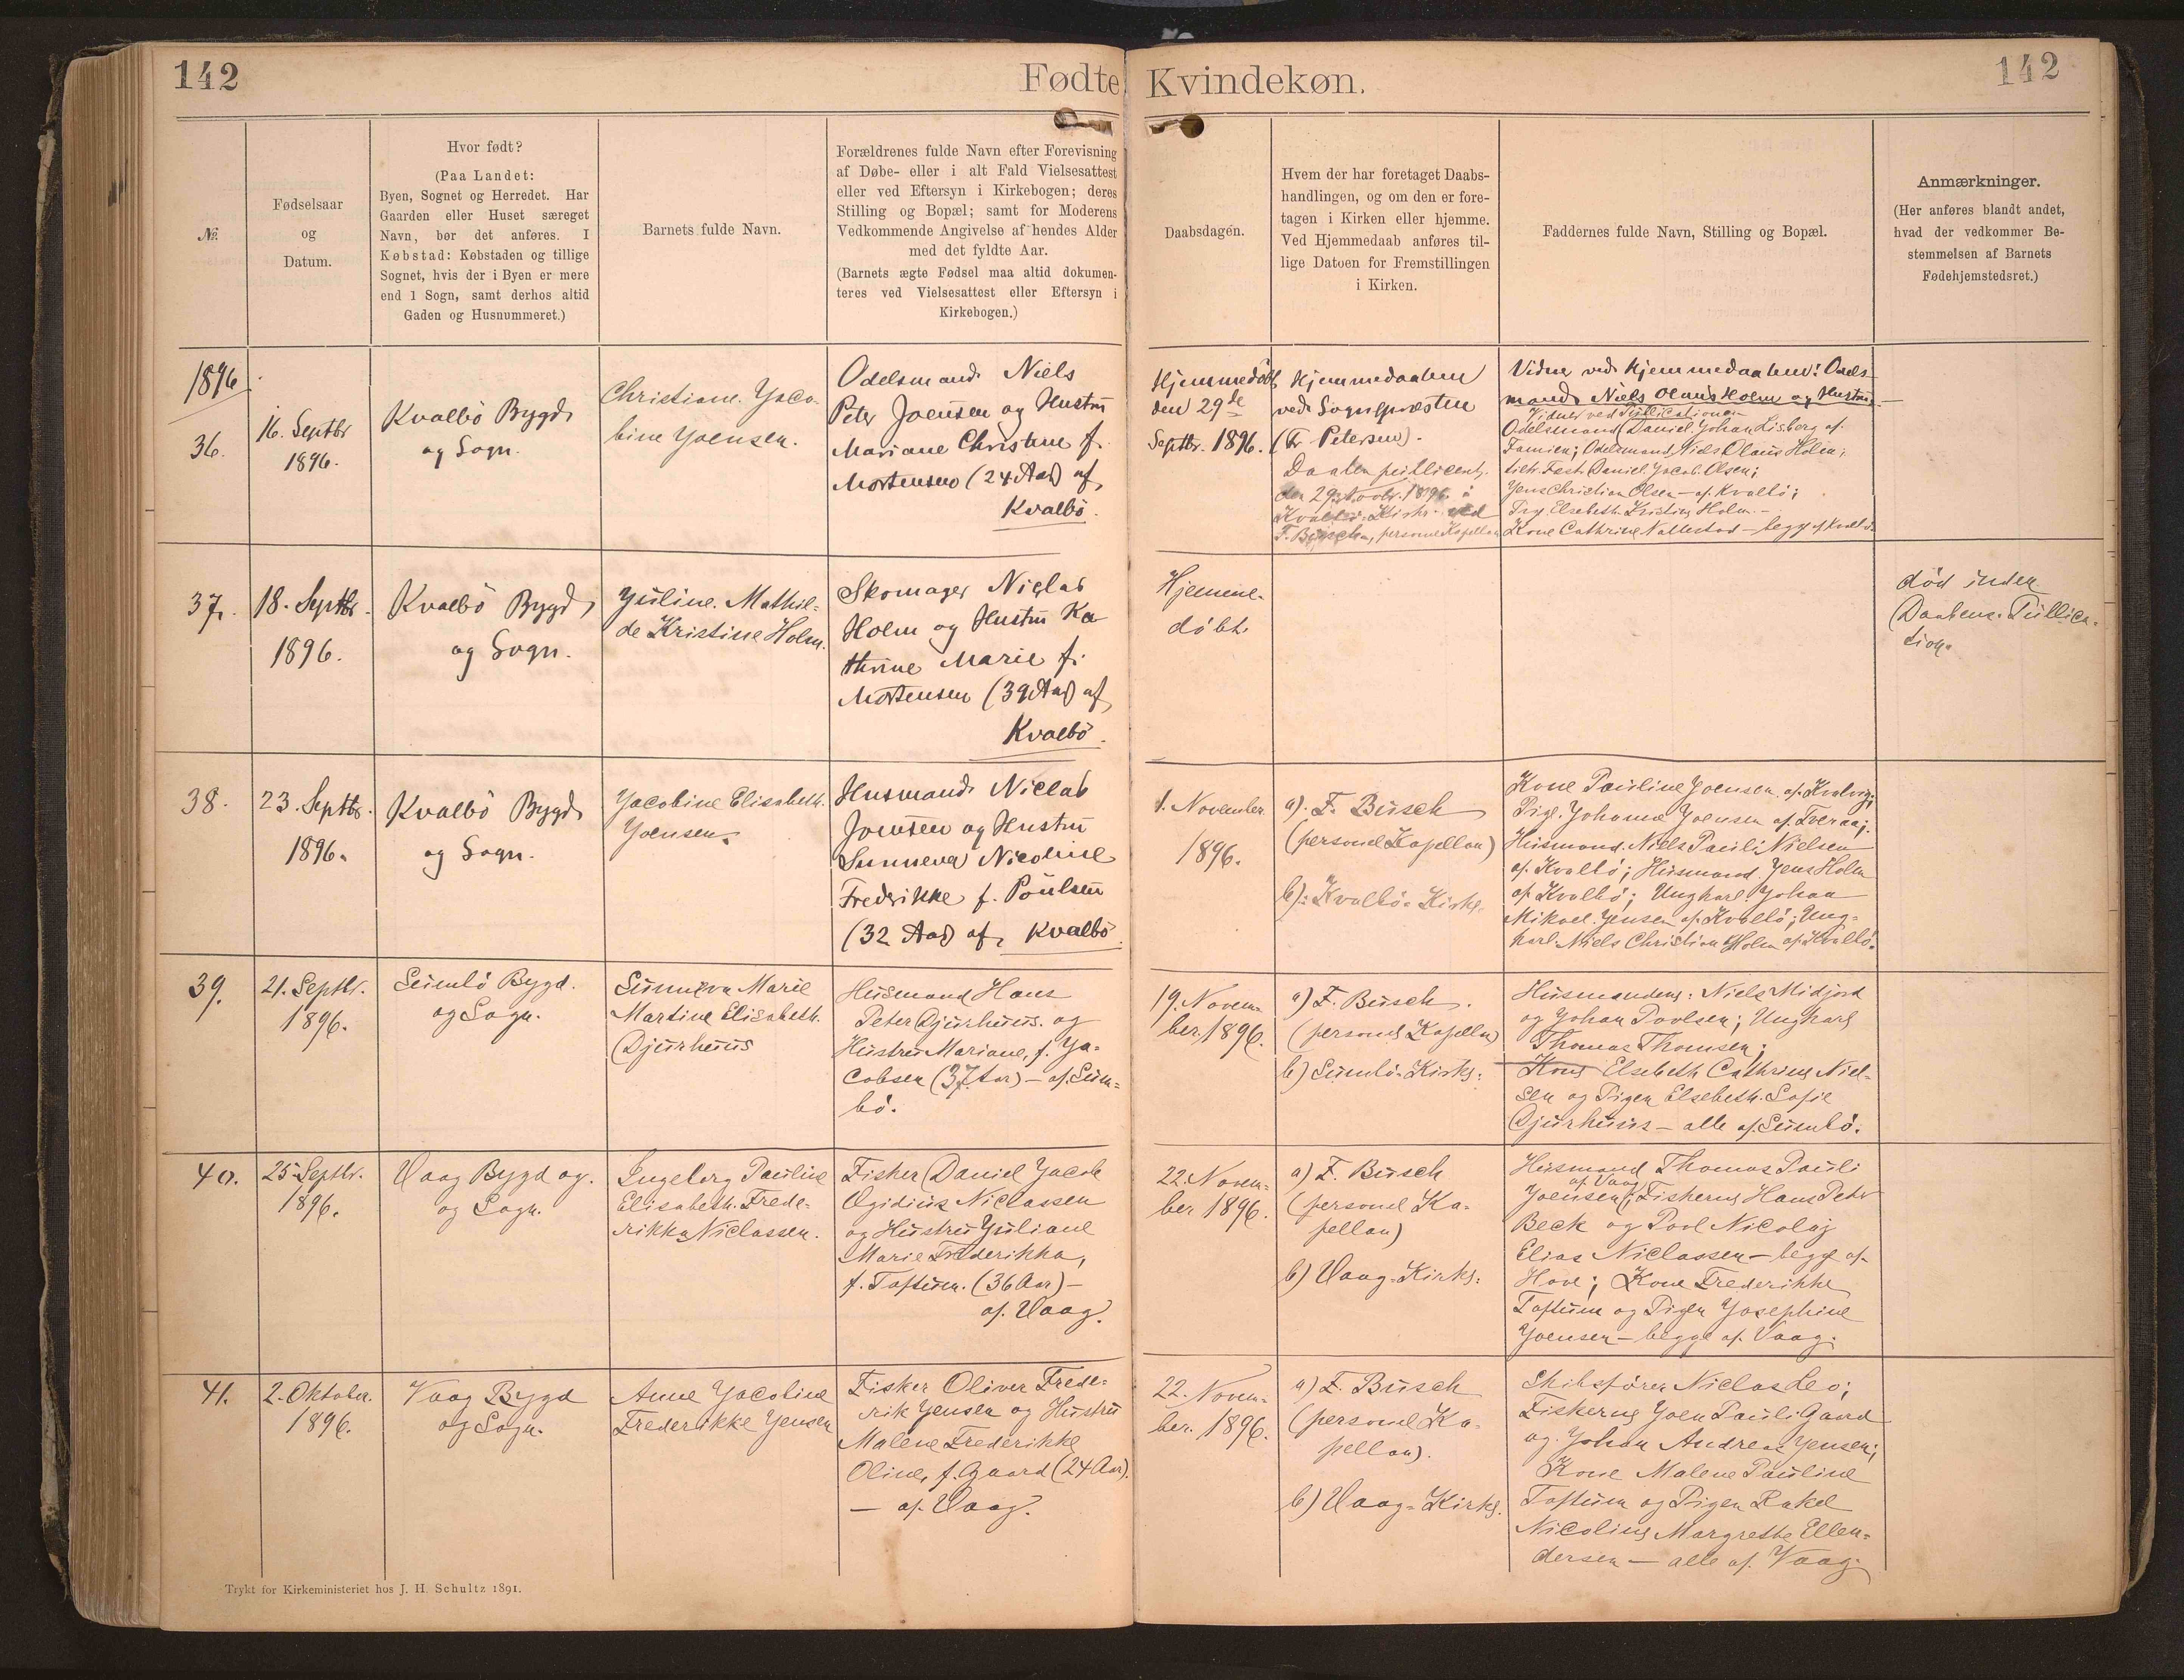 142
Fødte Kvindekøn.
142
№
Fødselsaar
og
Datum.
Hvor født?
(Paa Landet:
Byen, Sognet og Herredet. Har
Gaarden eller Huset særeget
Navn, bør det anføres. I
Købstad: Købstaden og tillige
Sognet, hvis der i Byen er mere
end 1 Sogn, samt derhos altid
Gaden og Husnummeret.)
Barnets fulde Navn.
Forældrenes fulde Navn efter Forevisning
af Døbe- eller i alt Fald Vielsesattest
eller ved Eftersyn i Kirkebogen; deres
Stilling og Bopæl; samt for Moderens
Vedkommende Angivelse af hendes Alder
med det fyldte Aar.
(Barnets ægte Fødsel maa altid dokumen-
teres ved Vielsesattest eller Eftersyn i
Kirkebogen.)
Daabsdagen.
Hvem der har foretaget Daabs-
handlingen, og om den er fore-
tagen i Kirken eller hjemme.
Ved Hjemmedaab anføres til-
lige Datoen for Fremstillingen
i Kirken.
Faddernes fulde Navn, Stilling og Bopæl.
Anmærkninger.
(Her anføres blandt andet,
hvad der vedkommer Be-
stemmelsen af Barnets
Fødehjemstedsret.)
1896
36.
16. Septbr
1896.
Kvalbö Bygd
og Sogn.
Christiane Jaco-
bine Joensen.
Odelsmand Niels
Peter Joensen og Hustru
Mariane Christine f.
Mortensen (24 Aar) af
Kvalbö.
Hjemmedöbt
den 29de
Septbr. 1896.
Hjemmedaaben
ved Sognepræsten
(Fr Petersen).
Daaben publiceret
den 29. Novbr. 1896 i
Kvalbö-Kirke ved
F. Busch, personel Kapellan
Vidner ved Hjemmedaaben: Odels-
mand Niels Olaus Holm og Hustru
Vidner ved Publicationen
Odelsmand Daniel Johan Lisberg af
Famien; Odelsmand Niels Olaus Holm;
Daniel Jacob Olsen;
Jens Christian Olsen - af Kvalbö;
Elsebeth Kristine Holm -
Kone Cathrine Nattestad - begge af Kvalbö.
37.
18. Septbr.
1896.
Kvalbö Bygd
og Sogn.
Juline Mathil-
de Kristine Holm.
Skomager Niclas
Holm og Hustru Ka-
thrine Marie f.
Mortensen (39 Aar) af
Kvalbö.
Hjemme-
döbt.
död inden
Daabens Publica-
tion.
38.
23. Septbr.
1896.
Kvalbö Bygd
og Sogn.
Jacobine Elisabeth
Joensen.
Husmand Niclas
Joensen og Hustru
Sunneva Nicoline
Frederikke f. Poulsen
(32 Aar) af Kvalbö.
1. November
1896.
a). F. Busch
(personel Kapellan)
b): Kvalbö-Kirke.
Kone Pauline Joensen af Hvalvig;
Pige Johanne Joensen af Tveraa;
Husmand Niels Pauli Nielsen
af Kvalbö; Husmand Jens Holm
af Kvalbö; Ungkarl Johan
Mikael Jensen af Kvalbö; Ung-
karl Niels Christian Holm af Kvalbö.
39.
21. Septbr.
1896.
Sumbö Bygd
og Sogn.
Sunneva Marie
Martine Elisabeth
Djurhuus
Husmand Hans
Peter Djurhuus og
Hustru Mariane, f. Ja-
cobsen (37 Aar) - af Sum-
bö.
19. Novem-
ber. 1896.
a) F. Busch.
(personel Kapellan)
b) Sumbö-Kirke.
Husmændene: Niels Midjord
og Johan Poulsen; Ungkarl
Thomas Thomsen;
Kone Elsebeth Cathrine Niel-
sen og Pigen Elsebeth Sofie
Djurhuus - alle af Sumbö.
40.
25. Septbr.
1896.
Vaag Bygd og
og Sogn.
Ingeborg Pauline
Elisabeth Frede-
rikka Niclassen.
Fisker Daniel Jacob
Ogidius Niclassen
og Hustru Juliane
Marie Frederikka,
f. Toftum. (36 Aar) -
af Vaag.
22. Novem-
ber 1896.
a) F. Busch
(personel Ka-
pellan)
b) Vaag-Kirke.
Husmand Thomas Pauli
af Vaag
Joensen; Fiskerne Hans Peter
Beck og Poul Nicolaj
Elias Niclassen - begge af
Hove; Kone Frederikke
Toftum og Pigen Josephine
Joensen - begge af Vaag.
41.
2. Oktober.
1896.
Vaag Bygd
og Sogn.
Anne Jacobine
Frederikke Jensen
Fisker Oliver Frede-
rik Jensen og Hustru
Malene Frederikke
Oline, f. Gaard (24 Aar).
- af Vaag.
22. Novem-
ber. 1896.
a) F. Busch
(personel Ka-
pellan).
b) Vaag-Kirke.
Skibsförer Niclas Leo;
Fiskerne Joen Pauli Gaard
og Johan Andreas Jensen;
Kone Malene Pauline
Toftum og Pigen Rakel
Nicoline Margrethe Ellen-
dersen - alle af Vaag.
Trykt for Kirkeministeriet hos J. H. Schultz 1891.